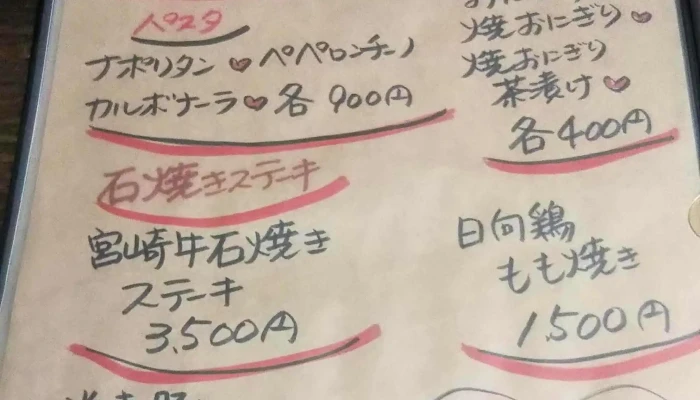 パスタ
ナポリタン♥ペペロンチーノ
カルボナーラ♥各900円
焼おにぎり♥
焼おにぎり
茶漬け♥
各400円
石焼きステーキ
宮崎牛石焼き
ステーキ
3,500円
日向鶏
もも焼き
1,500円